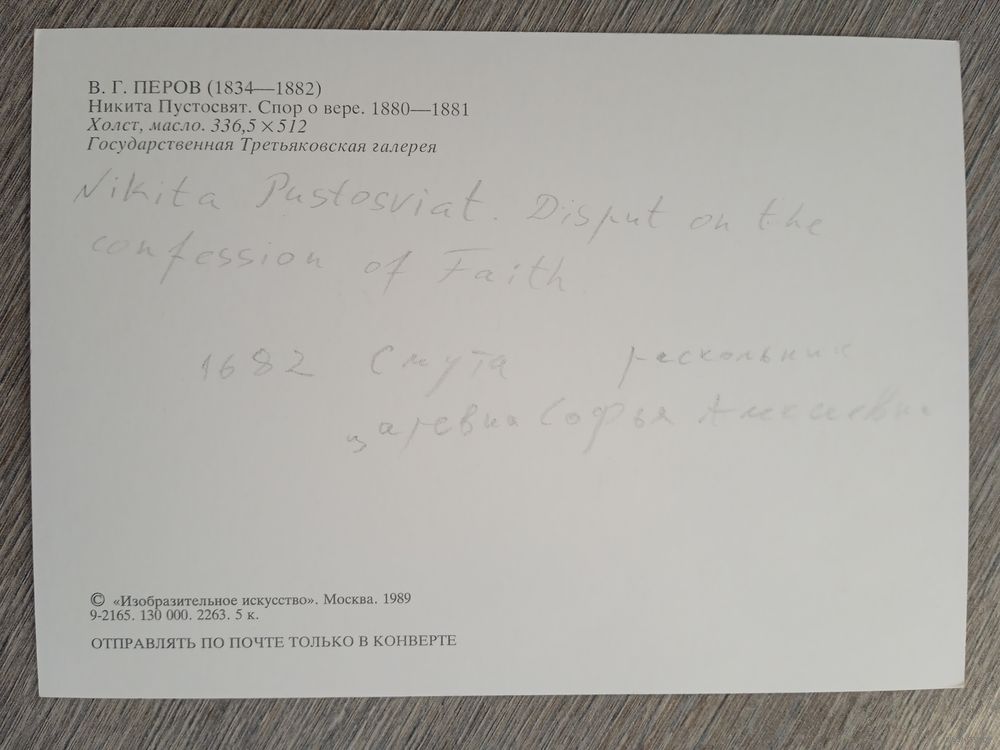 В. Г. ПЕРОВ (1834—1882)
Никита Пустосвят. Спор о вере. 1880—1881
Холст, масло. 336,5 × 512
Государственная Третьяковская галерея
Nikita Pustosviat. Disput on the
confession of Faith
1682 Смута раскольник
царевна Софья Алексеевна
© «Изобразительное искусство». Москва. 1989
9-2165. 130 000. 2263. 5 к.
ОТПРАВЛЯТЬ ПО ПОЧТЕ ТОЛЬКО В КОНВЕРТЕ